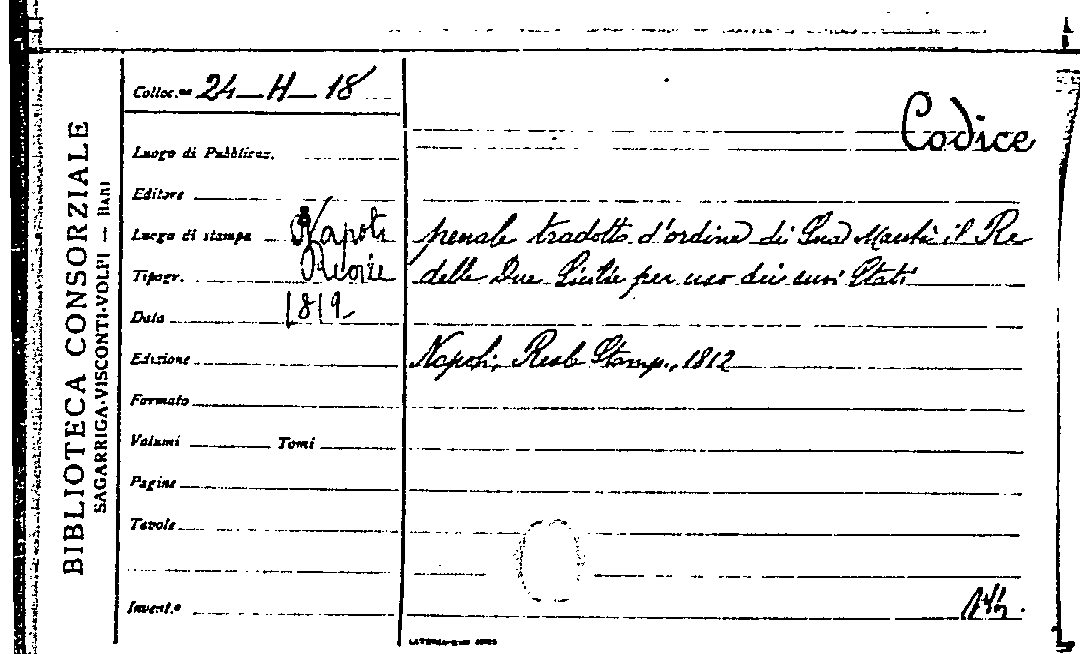 BIBLIOTECA CONSORZIALE
SAGARRIGA-VISCONTI-VOLPI — BARI
Colloc.ne 24-H-18
Luogo di Pubblicaz.
Editore
Luogo di stampa Napoli
Tipogr. Reale
Data 1819
Edizione
Formato
Volumi Tomi
Pagine
Tavole
Invent.o
Codice
penale tradotto d'ordine di Sua Maestà il Re
delle Due Sicilie per uso dei suoi Stati
Napoli, Reale Stamp., 1812